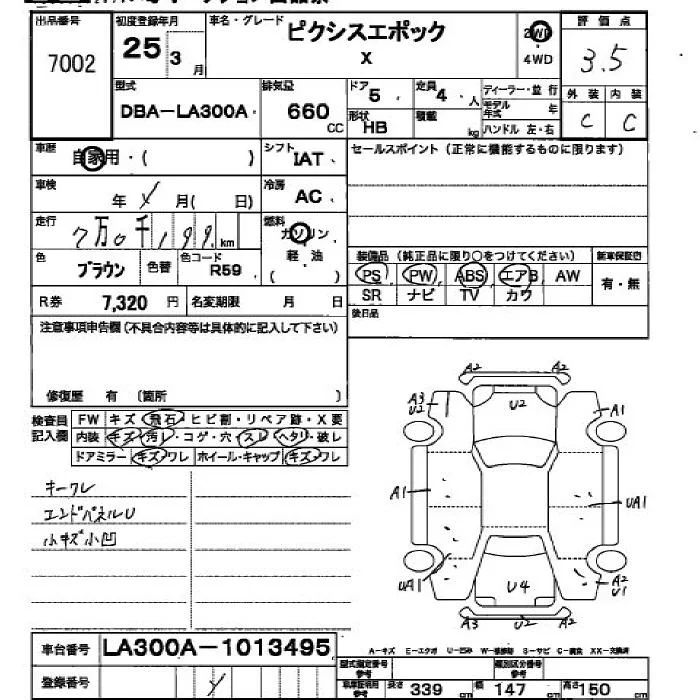 出品番号 初度登録年月 車名・グレード 評価点
7002 25 3月 ピクシスエポック X 2WD ・ 4WD 3.5
型式 排気量 ドア 5 定員 4人 ディーラー・並行 外装 内装
DBA-LA300A 660 CC 形状 HB 積載 kg モデル年式 年 ハンドル 左・右 C C
車歴 自家用・( ) シフト IAT セールスポイント (正常に機能するものに限ります)
車検 年 月( 日) 冷房 AC
走行 7万0千199km 燃料 ガソリン 軽・油 ( )
色 ブラウン 色替 色コード R59
装備品 (純正品に限り○をつけてください) 新車保証書
PS PW ABS エアB AW 有・無
SR ナビ TV カワ
R券 7,320円 名変期限 月 日 後日品
注意事項申告欄 (不具合内容等は具体的に記入して下さい)
修復歴 有 (箇所 )
検査員記入欄 FW キズ・飛石・ヒビ割・リペア跡・X要
内装 キズ・汚レ・コゲ・穴・スレ・ヘタリ・破レ
ドアミラー キズ・ワレ ホイール・キャップ キズ・ワレ
キークレ
エンドパネルU
小キズ小凹
A2 A2
A3 U2 U2 A1
A1 UA1
UA1 U4 A2 U1
A3 U2 A2
車台番号 LA300A-1013495
A-キズ E-エクボ U-凹み W-補修跡 S-サビ C-腐食 XX-交換済
登録番号
型式指定番号 参考 類別区分番号 参考
車庫証明用 参考 長さ 339 cm 幅 147 cm 高さ 150 cm